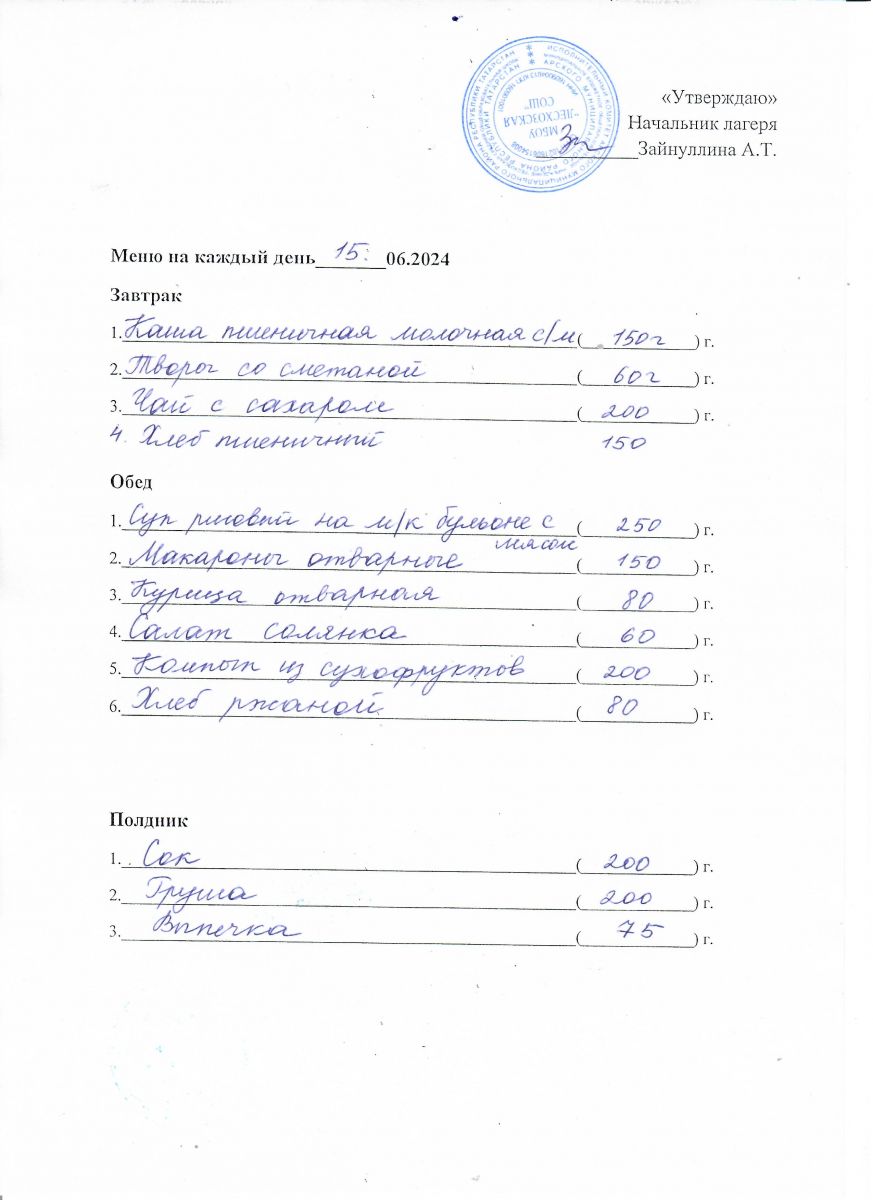 «Утверждаю»
Начальник лагеря
Зайнуллина А.Т.
МБОУ
"ЛЕСХОЗСКАЯ
СОШ"
Меню на каждый день 15. 06.2024
Завтрак
1. Каша пшеничная молочная с/м ( 150г ) г.
2. Творог со сметаной ( 60г ) г.
3. Чай с сахаром ( 200 ) г.
4. Хлеб пшеничный 150
Обед
1. Суп рисовый на м/к бульоне с ( 250 ) г.
мясом
2. Макароны отварные ( 150 ) г.
3. Курица отварная ( 80 ) г.
4. Салат солянка ( 60 ) г.
5. Компот из сухофруктов ( 200 ) г.
6. Хлеб ржаной ( 80 ) г.
Полдник
1. Сок ( 200 ) г.
2. Груша ( 200 ) г.
3. Выпечка ( 75 ) г.